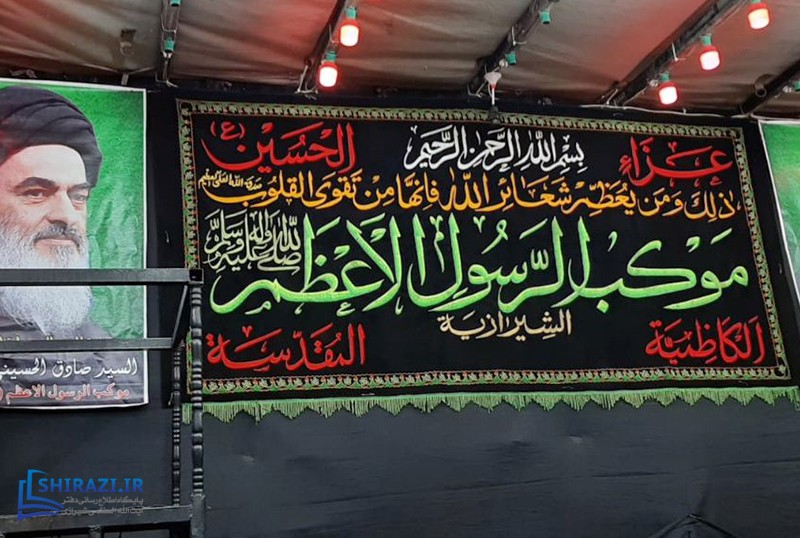 عزاء بسم الله الرحمن الرحيم الحسين (ع)
ذلك ومن يعظم شعائر الله فإنها من تقوى القلوب صدق الله العلي العظيم
موكب الرسول الأعظم صلى الله عليه وآله وسلم
الشيرازية
الكاظمية المقدسة
السيد صادق الحسيني
موكب الرسول الاعظم (
SHIRAZI.IR
پایگاه اطلاع رسانی دفتر
آیت الله العظمی شیرازی